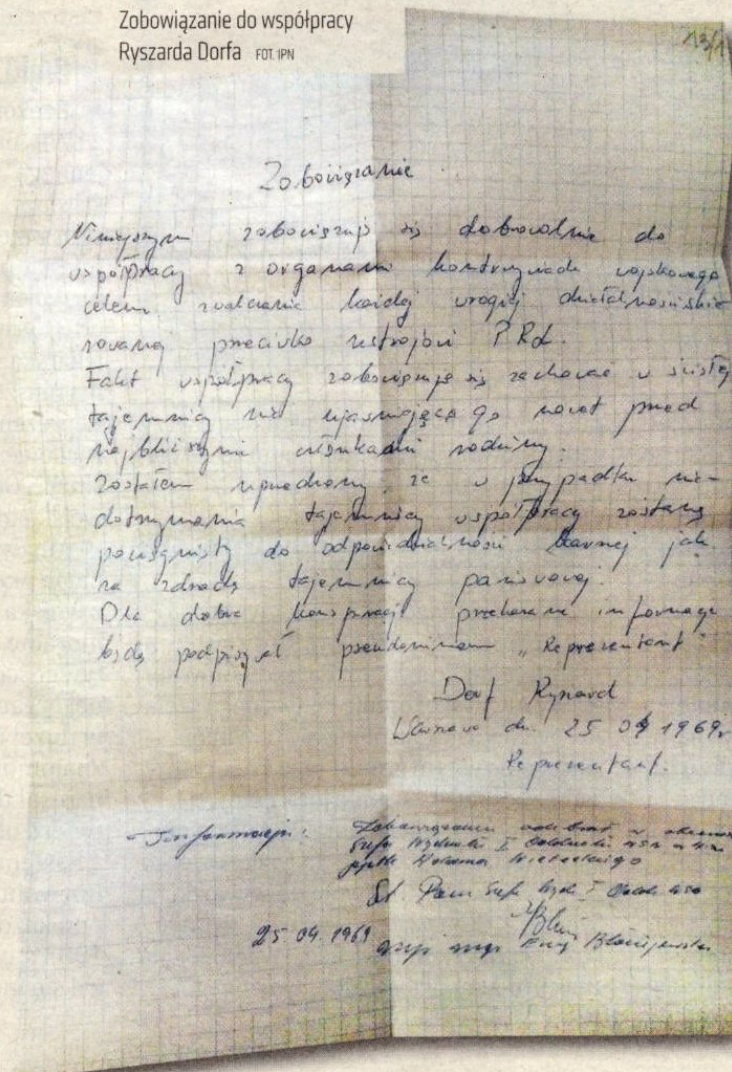 Zobowiązanie do współpracy
Ryszarda Dorfa FOT. IPN
13/1
Zobowiązanie
Niniejszym zobowiązuję się dobrowolnie do
współpracy z organami kontrwywiadu wojskowego
celem zwalczania każdej wrogiej działalności skie-
rowanej przeciwko ustrojowi PRL.
Fakt współpracy zobowiązuję się zachować w ścisłej
tajemnicy nie ujawniając go nawet przed
najbliższymi członkami rodziny.
Zostałem uprzedzony, że w przypadku nie-
dotrzymania tajemnicy współpracy zostanę
pociągnięty do odpowiedzialności karnej jak
za zdradę tajemnicy państwowej.
Dla dobra konspiracji przekazane informacje
będę podpisywał pseudonimem „Reprezentant”
Dorf Ryszard
Warszawa dn. 25 04 1969r
Reprezentant.
Informacja: Zobowiązanie odebrał w obecności
Szefa Wydziału I Oddziału WSW
ppłk
St. Pom Szefa Wydz I Oddz WSW
25.04.1969 mgr